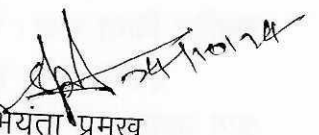 24/10/24
भियंता प्रमुख